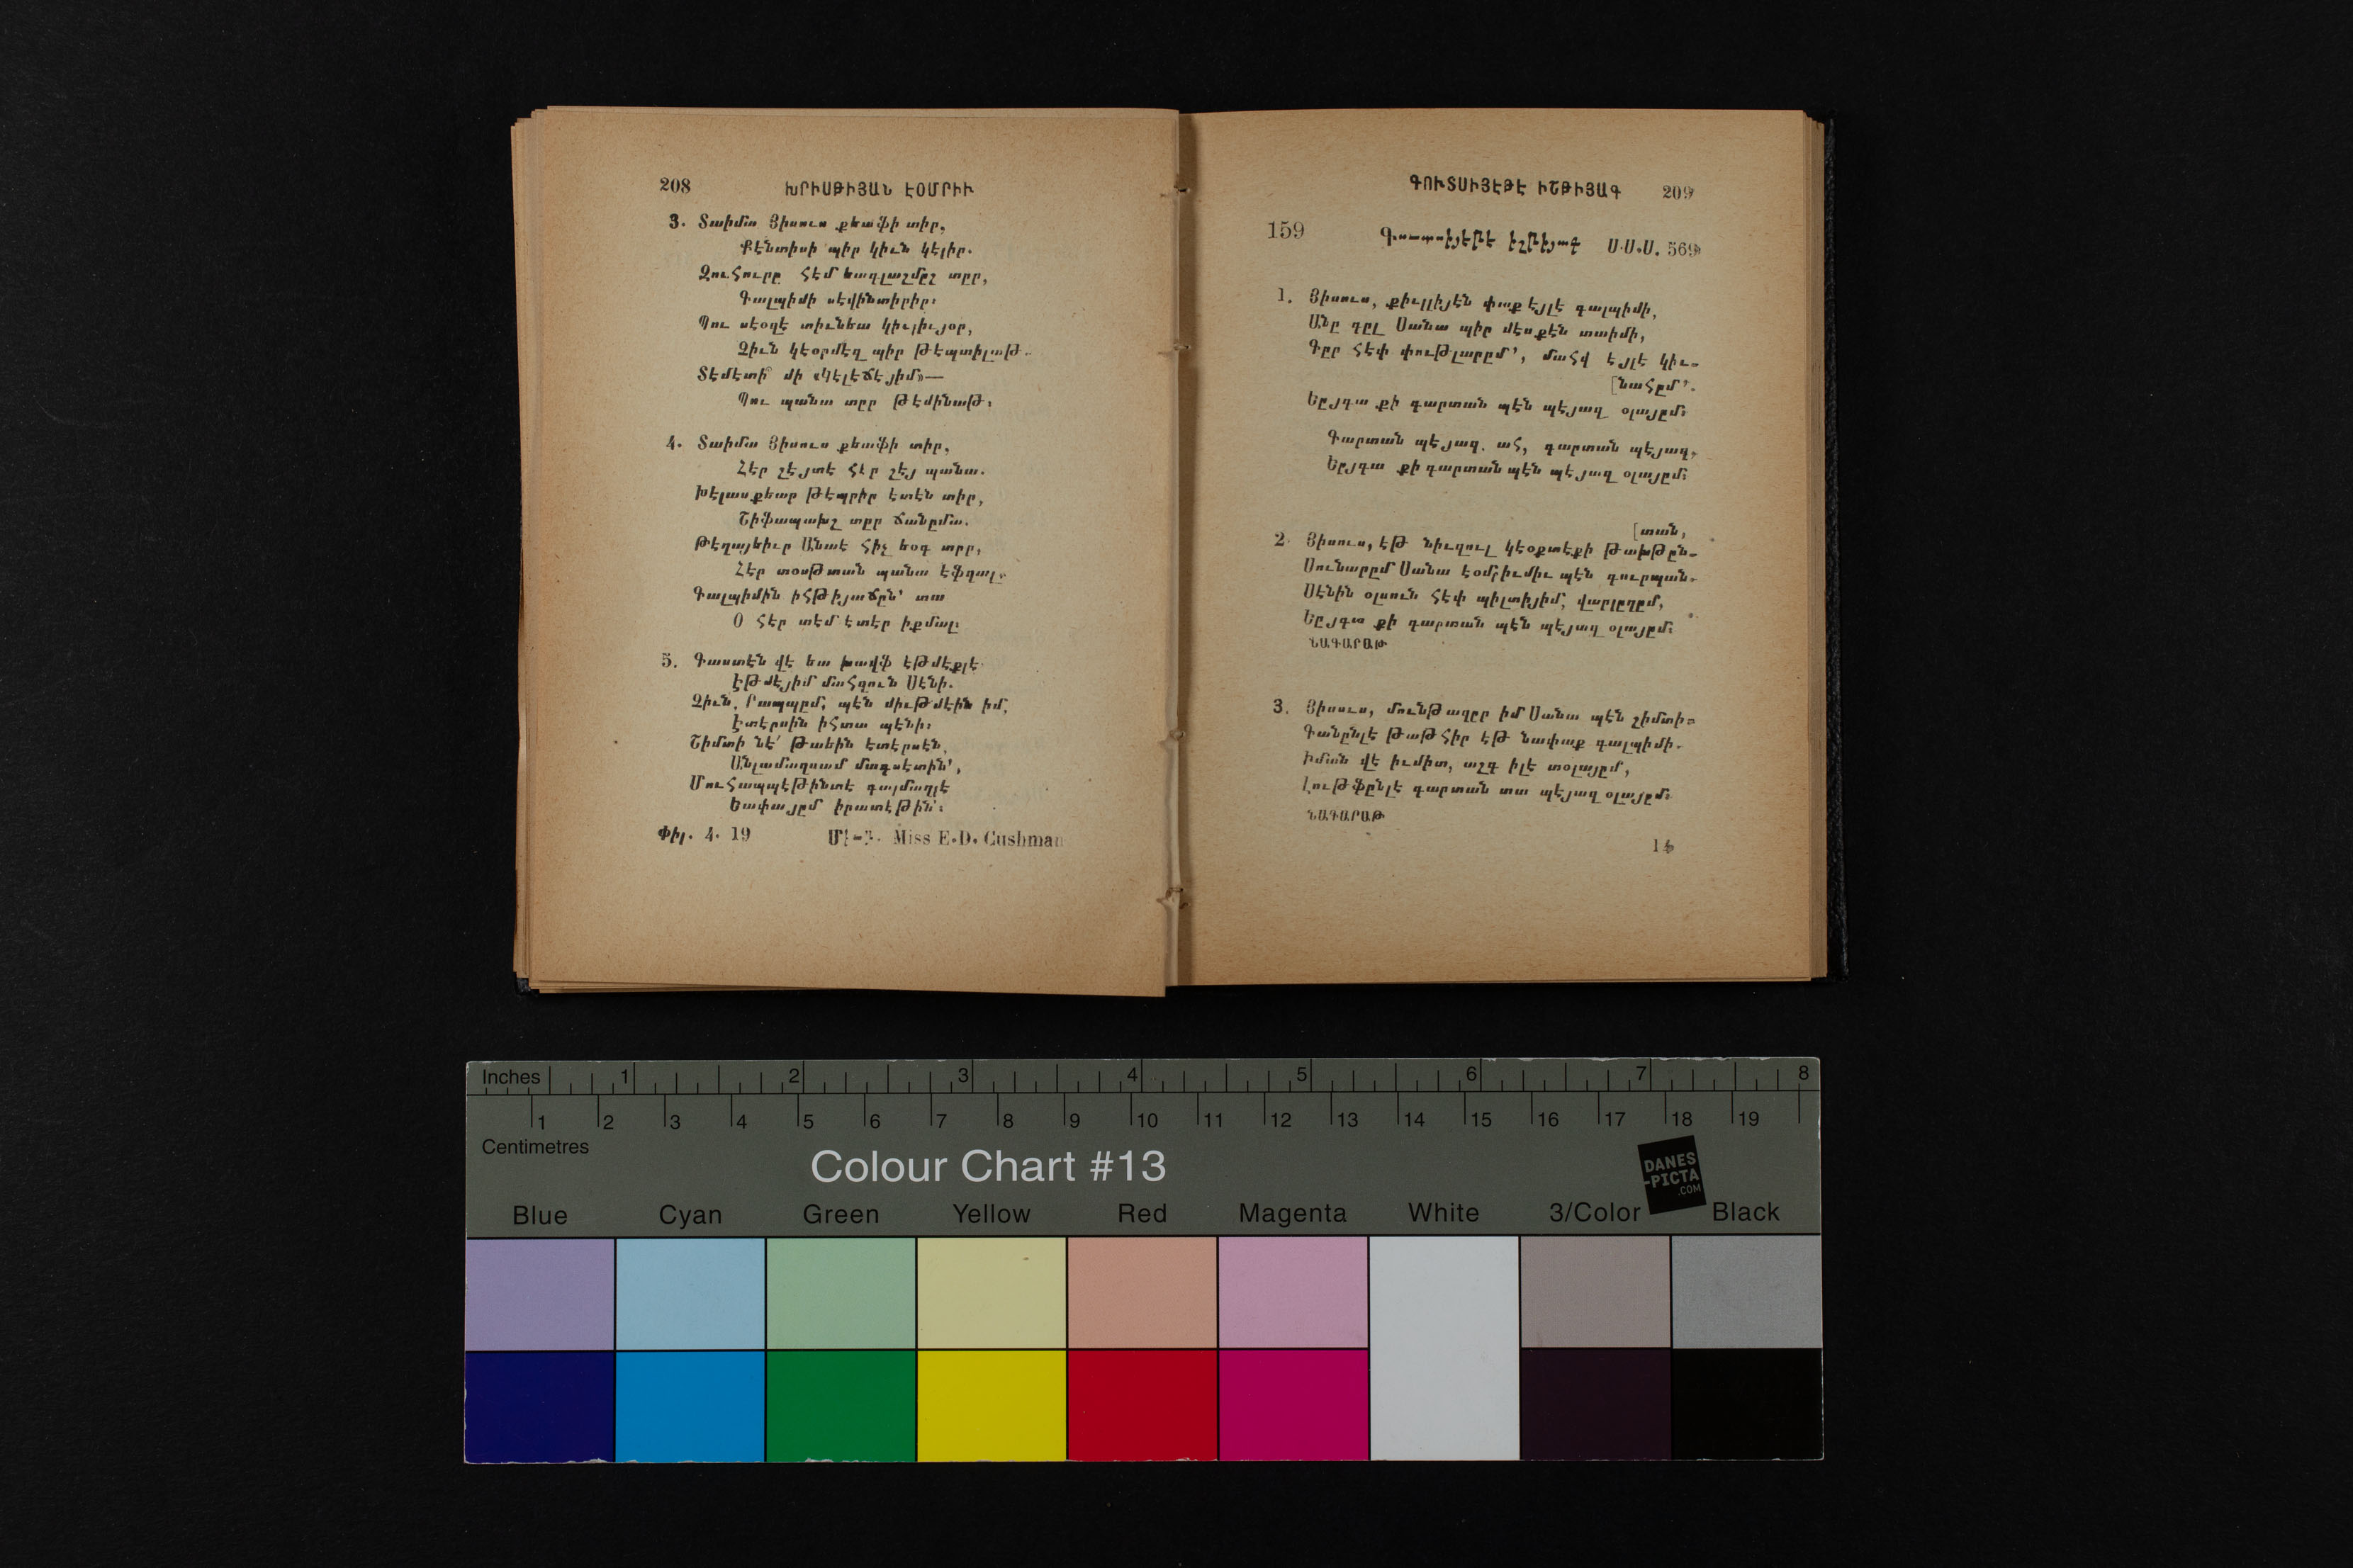 208 ԽՐԻՍԹԻՅԱՆ ԷՕՄՐԻՒ
3. Տաիմա Յիսուս քեաֆի տիր,
Քէնտիսի պիր կիւն կէլիր.
Զուհուրը հէմ եագլաշմըշ տըր,
Գալպիմի սէվինտիրիր։
Պու սէօզէ տիւնեա կիւլիւյօր,
Զիւն կէօրմէզ պիր թէպտիլաթ.
Տէմէտի՞ մի «Կէլէճէյիմ»—
Պու պանա տըր թէմինաթ։
4. Տաիմա Յիսուս քեաֆի տիր,
Հէր շէյտէ հէր շէյ պանա.
Խէլասքեար թէպրիր էտէն տիր,
Շիֆապախշ տըր ճանըմա.
Թէղայեիւր Անտէ հիչ եօգ տըր,
Հէր տօսթտան պանա էֆզալ.
Գալպիմին իհթիյաճըն՚ տա
Օ հէր տէմ էտէր իքմալ։
5. Գաստէն վէ եա խավֆ էթմէքլէ
Էթմէյիմ մահզուն Սէնի.
Զիւն, Րապպըմ, պէն միւթմէին իմ,
Էտէրսին իհտա պէնի։
Շիմտի նէ՛ թաեին էտէրսէն,
Անլամազսամ մագսէտին՚,
Մուհապպէթինտէ գալմաղլէ
Եափայըմ իրատէթին՚։
Փիլ. 4. 19 Miss E.D. Cushman
ԳՈՒՏՍԻՅԷԹԷ ԻՇԹԻՅԱԳ 209
159 Գուտսիյէթէ իշթիյագ Ս.Ս.Ս. 569
1. Յիսուս, քիւլլիյէն փաք էյլէ գալպիմի,
Անը գըլ Սանա պիր մէսքէն տաիմի,
Գըր հէփ փութլարըմ՚, մահվ էյլէ կիւ-
[նահըմ՚.
Եըյգա քի գարտան պէն պէյազ օլայըմ։
Գարտան պէյազ, ահ, գարտան պէյազ,
Եըյգա քի գարտան պէն պէյազ օլայըմ։
[տան,
2. Յիսուս, էթ նիւզուլ կէօքտէքի թախթըն-
Սունարըմ Սանա էօմրիւմիւ պէն գուրպան.
Սէնին օլսուն հէփ պիլտիյիմ, վարլըղըմ,
Եըյգա քի գարտան պէն պէյազ օլայըմ։
ՆԱԳԱՐԱԹ
3. Յիսուս, մունթազըր իմ Սանա պէն շիմտի-
Գանընլէ թաթհիր էթ նափաք գալպիմի.
Իման վէ իւմիտ, աշգ իլէ տօլայըմ,
Լութֆընլէ գարտան տա պէյազ օլայըմ։
ՆԱԳԱՐԱԹ
14
Inches 1 2 3 4 5 6 7 8
1 2 3 4 5 6 7 8 9 10 11 12 13 14 15 16 17 18 19
Centimetres
Colour Chart #13
DANES
-PICTA
.COM
Blue Cyan Green Yellow Red Magenta White 3/Color Black